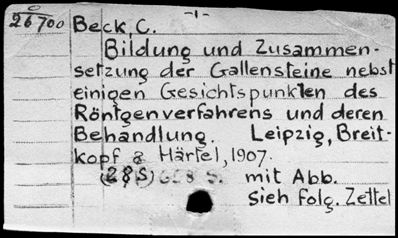 26700
-1-
Beck, C.
Bildung und Zusammen-
setzung der Gallensteine nebst
einigen Gesichtspunkten des
Röntgenverfahrens und deren
Behandlung. Leipzig, Breit-
kopf & Härtel, 1907.
(28 S) mit Abb.
Sieh folg. Zettel